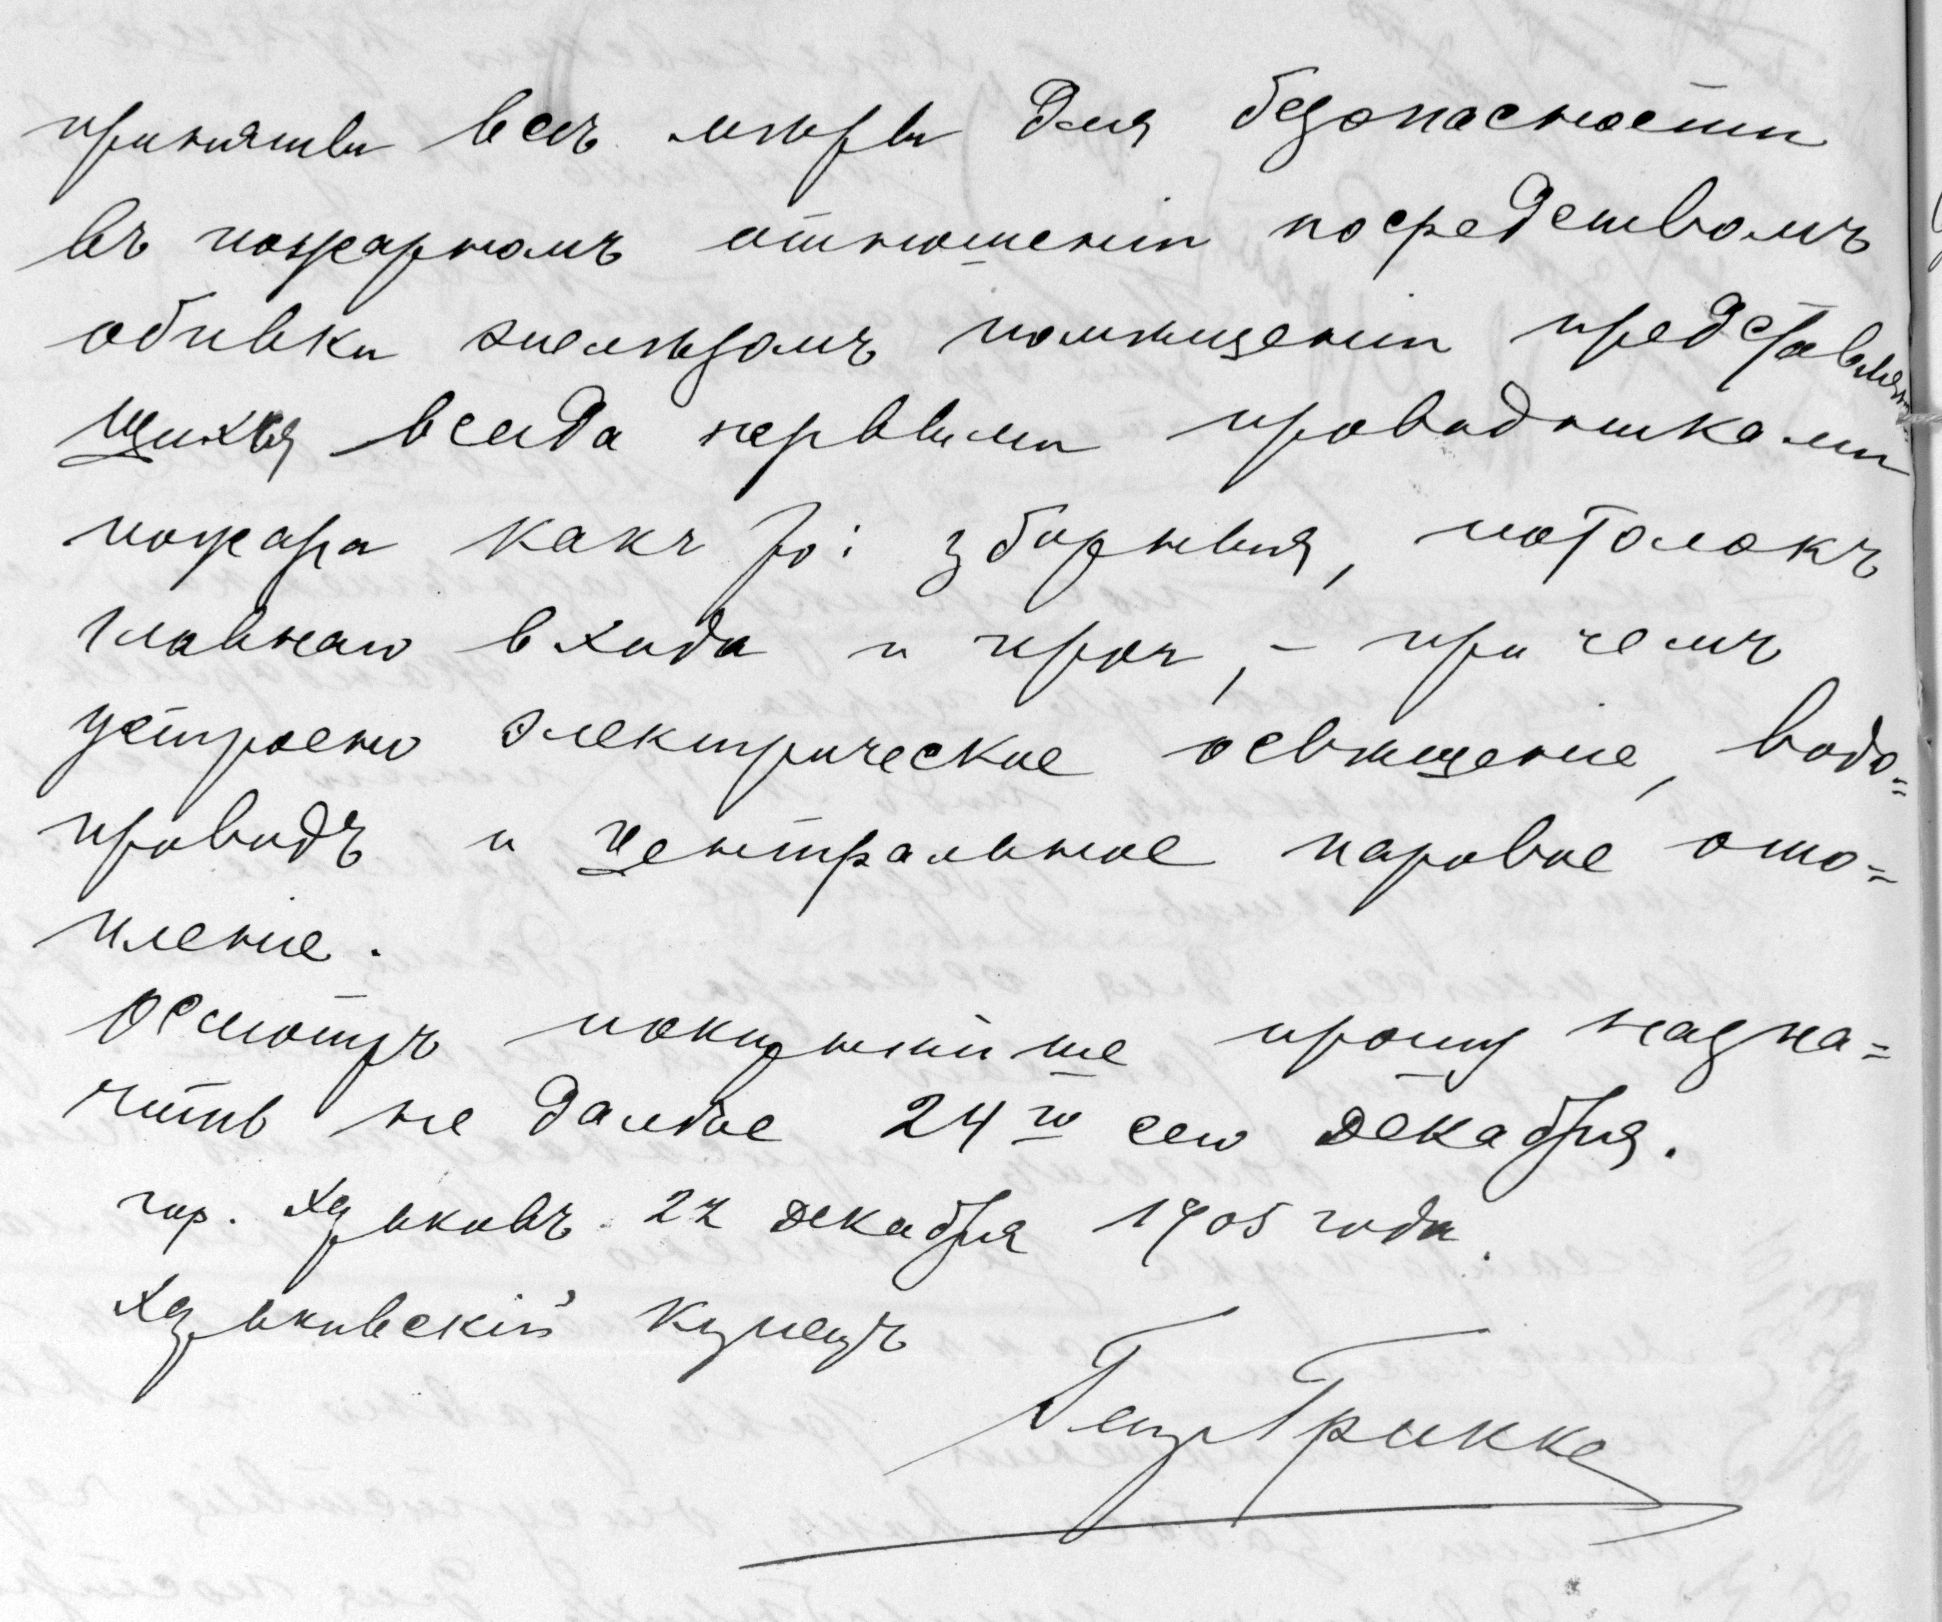 приняты всѣ мѣры для безопасности
въ пожарномъ отношеніи посредствомъ
обивки желѣзомъ помѣщеніи представляю-
щихся всегда первыми проводниками
пожара какъ то: уборныя, потолокъ
главнаго входа и проч, – при чемъ
устроено электрическое освѣщеніе, водо=
проводъ и центральное паровое ото=
пленіе.
Осмотръ покорнѣйше прошу назна=
чить не далѣе 24го сего декабря.
гор. Харьковъ. 22 декабря 1905 года.
Харьковскій купецъ
Грикке